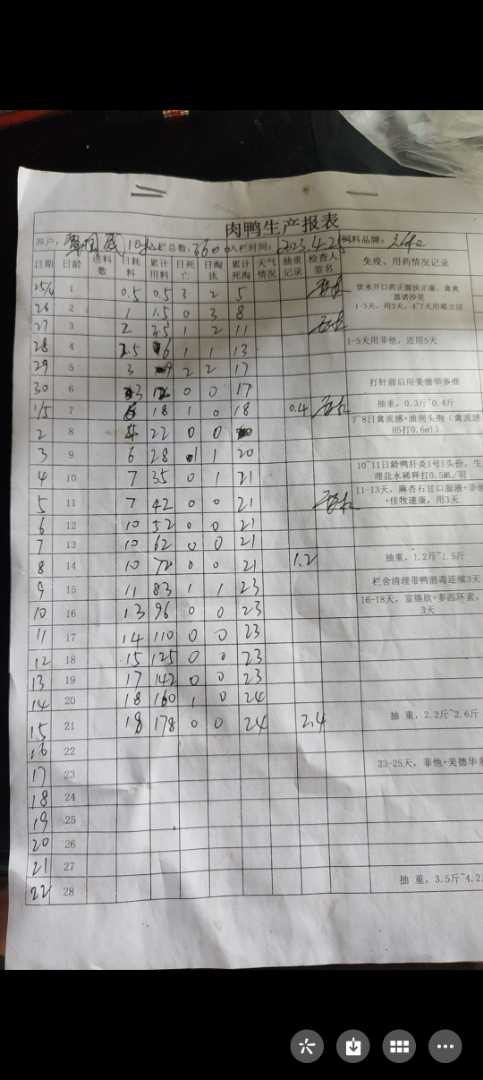 肉鸭生产报表
入栏总数: 3600 入栏时间: 2023.4.25 饲料品牌:
日期 日龄 进料数 日耗料 累计用料 日死亡 日淘汰 累计死淘 天气情况 抽重记录 检查人签名 免疫、用药情况记录
25/4 1 0.5 0.5 3 2 5
26 2 1 1.5 0 3 8 1-3天,用3天,
27 3 2 3.5 1 2 11
28 4 2.5 6 1 1 13 1-5天用菲他,连用5天
29 5 3 9 2 2 17
30 6 3 12 0 0 17 打针前后用美德华多维
1/5 7 6 18 1 0 18 0.4 抽重,0.3斤~0.4斤
2 8 4 22 0 0 7~8日禽流感+浆刚头孢(禽流感H5打0.6ml)
3 9 6 28 1 20
4 10 7 35 0 1 21 10~11日龄鸭肝炎1号1头份,生理盐水稀释打0.5ML/羽
5 11 7 42 0 0 21 11-13天,麻杏石甘口服液+菲他+佳牧速康,用3天
6 12 10 52 0 0 21
7 13 10 62 0 0 21
8 14 10 72 0 0 21 1.2 抽重,1.2斤~1.5斤
9 15 11 83 1 1 23 栏舍清理带鸭消毒连续3天
10 16 13 96 0 0 23 16-18天,富锦欣+多西环素,3天
11 17 14 110 0 0 23
12 18 15 125 0 0 23
13 19 17 142 0 0 23
14 20 18 160 1 0 24
15 21 18 178 0 0 24 2.4 抽 重,2.2斤~2.6斤
16 22
17 23 23-25天,菲他+美德华
18 24
19 25
20 26
21 27
22 28 抽 重,3.5斤~4.2